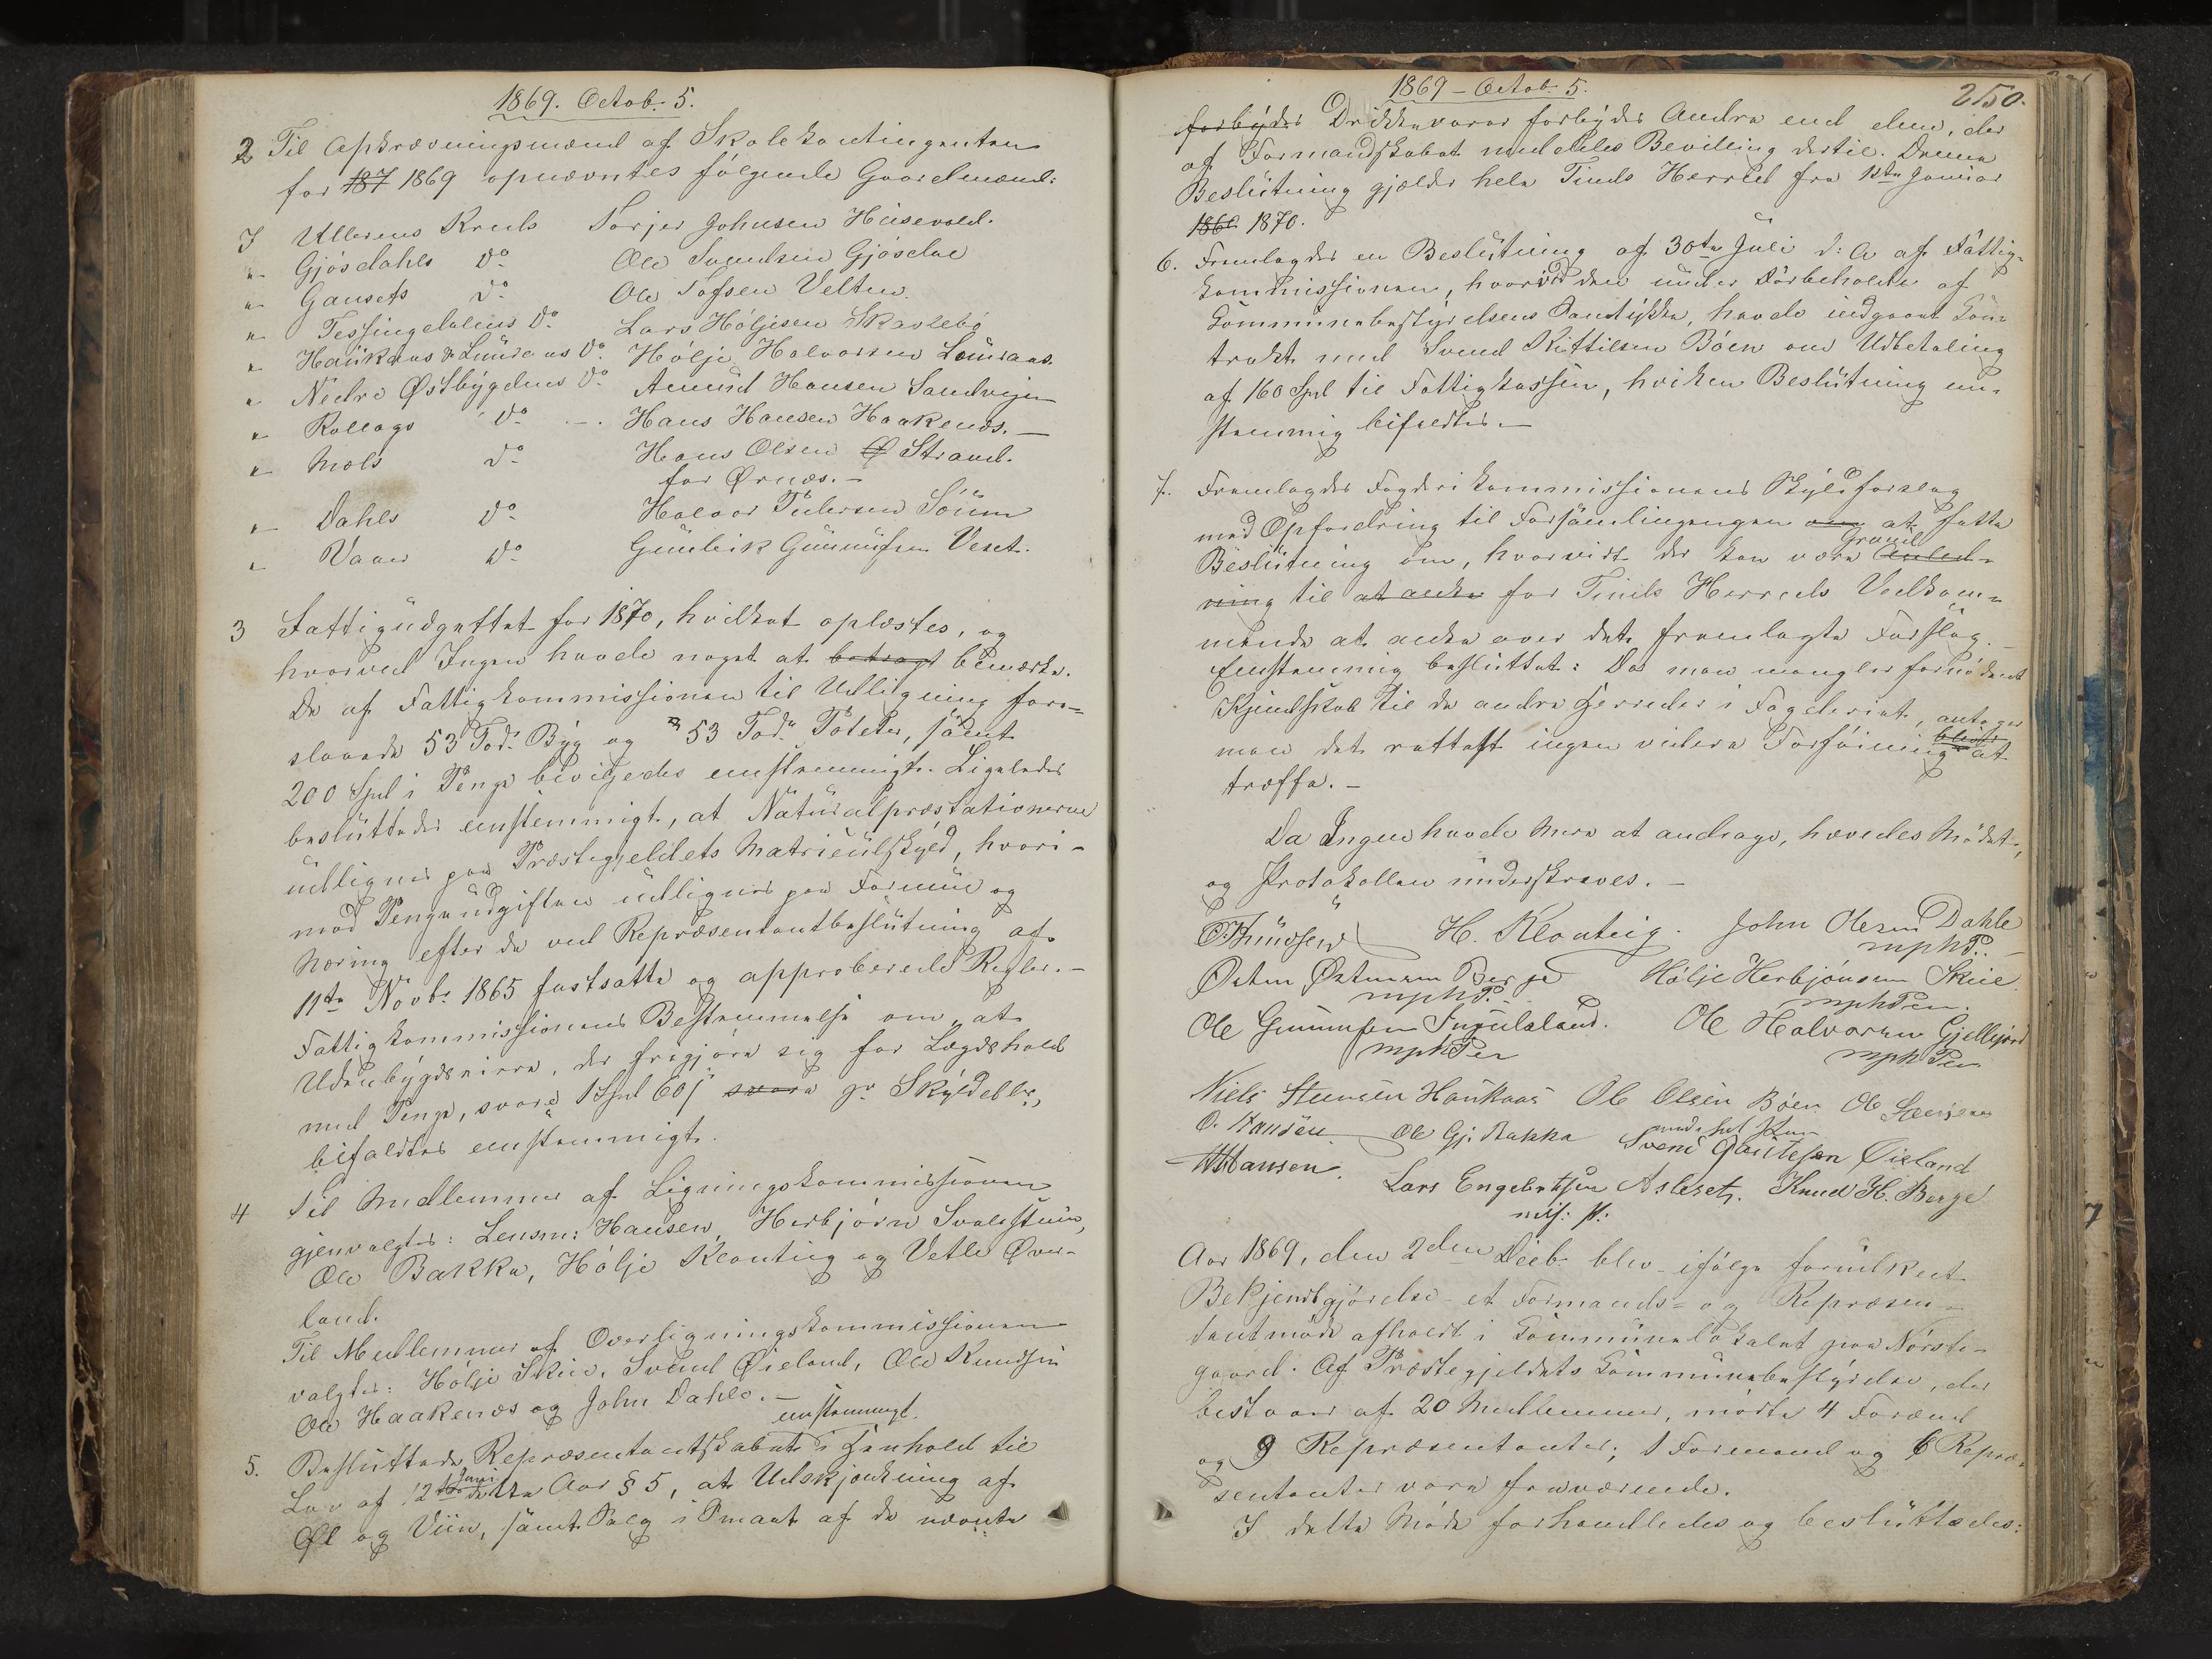 1869. Octob. 5.
2 Til Opkrævningsmænd af Skolekontingenten
for 187 1869 opnævntes følgende Gaardmænd:
I Ullerens Kreds Torjer Johnsen Husevold.
" Gjøsdahls Do Ole Svendsen Gjøsdal
" Gausets Do Ole Tofsen Velten.
" Tessingdalens Do Lars Høljesen Skavlebø
" Haukaas & Luraas Do Hølje Halvorsen Luraas.
" Nedre Østbygdens Do Amund Hansen Sandvigen
" Rollags Do Hans Hansen Haakenæs. —
" Mæls Do Hans Olsen Ø Strand.
for Ørnæs. —
" Dahls Do Halvor Pedersen Söum
" Vaaer Do Gunleik Gunnufsen Veset.
3 Fattigbudgettet for 1870, hvilket oplæstes, og
hvorved Ingen havde noget at betragt bemærke.
De af Fattigkommissionen til Udligning fore=
slaaede 53 Tød. Byg og 53 Tød. Poteter, samt
200 Spd i Penge bevilgedes eenstemmigt. Ligeledes
besluttedes eenstemmigt, at Naturalpræstationerne
udlignes paa Præstegjeldets Matriculskyld, hvori-
mod Pengeudgiften udlignes paa Formue og
Næring efter de ved Repræsentantbeslutning af
11te Novbr 1865 fastsatte og approberede Regler. —
Fattigkommissionens Bestemmelse om, at
Udenbygdseiere, der frigjøre sig for Lægdshold
med Penge, svare 1 Spd 60 s svare pr Skylddlr,
bifaldtes eenstemmigt.
4 Til Medlemmer af Ligningskommissionen
gjenvalgtes: Lensm: Hansen, Herbjørn Svalestuen,
Ole Bakka, Hølje Klonteig og Vetle Øver-
land.
Til Medlemmer af Overligningskommissionen
valgtes: Hølje Skeie, Svend Øieland, Ole Knudsen
Ole Haakenæs og John Dahle. —
eenstemmigt.
5. Besluttede Repræsentantskabet i Henhold til
Lov af 12te Juni dette Aar § 5, at Udskjænkning af
Øl og Viin, samt Salg i Smaat af de nævnte
1869 - Octob. 5.
250.
forbydes Drikkevarer forbydes Andre end dem, der
af Formandskabet meddeles Bevilling dertil. Denne
Beslutning gjælder hele Tinds Herred fra 1ste Januar
1860 1870.
6. Fremlagdes en Beslutning af 30te Juli d: A af Fattig-
kommissionen, hvorved den under Forbehold af
Communebestyrelsens Samtykke, havde indgaaet Con-
trakt med Svend Kittilsen Bøen om Udbetaling
af 160 Spd til Fattigkassen, hvilken Beslutning een-
stemmig bifaldtes. —
7. Fremlagdes Fogderikommissionens Skyldforslag
med Opfordring til Forsamlingengen om at fatte
Beslutning om, hvorvidt der kan være Grund Anled-
ning til at anke for Tinds Herreds Vedkom-
mende at anke over det fremlagte Forslag. —
Eenstemmig besluttet: Da man mangler fornødent
Kjendskab til de andre Herreder i Fogderiet, antager
man det rettest ingen videre Forføining at
træffe. —
Da Ingen havde mere at andrage, hævedes Mødet,
og Protokollen underskreves. —
H. Klonteig. John Olesen Dahle
mphP.
Østen Østensen Berge Hølje Herbjønsen Skeie
mphP. mphPen.
Ole Gunnufsen Ingulsland. Ole Halvorsen Gjellesjord
mphPen mphPen
Niels Steensen Haukaas Ole Olsen Bøen Ole
O. Hansen Ole Gj. Bakka Svend Gautesen Øieland
Hansen. Lars Engebretsen Asleset. Knud H. Berge
Aar 1869, den 2den Decb. blev ifølge forudskeet
Bekjendtgjørelse et Formands- og Repræsen-
tantmøde afholdt i Communelokalet paa Nørste-
gaard. Af Præstegjeldets Communebestyrelse, der
bestaaer af 20 Medlemmer, mødte 4 Formænd
og 9 Repræsentanter; 1 Formand og 6 Repræ-
sentanter vare fraværende.
I dette Møde forhandledes og besluttedes: